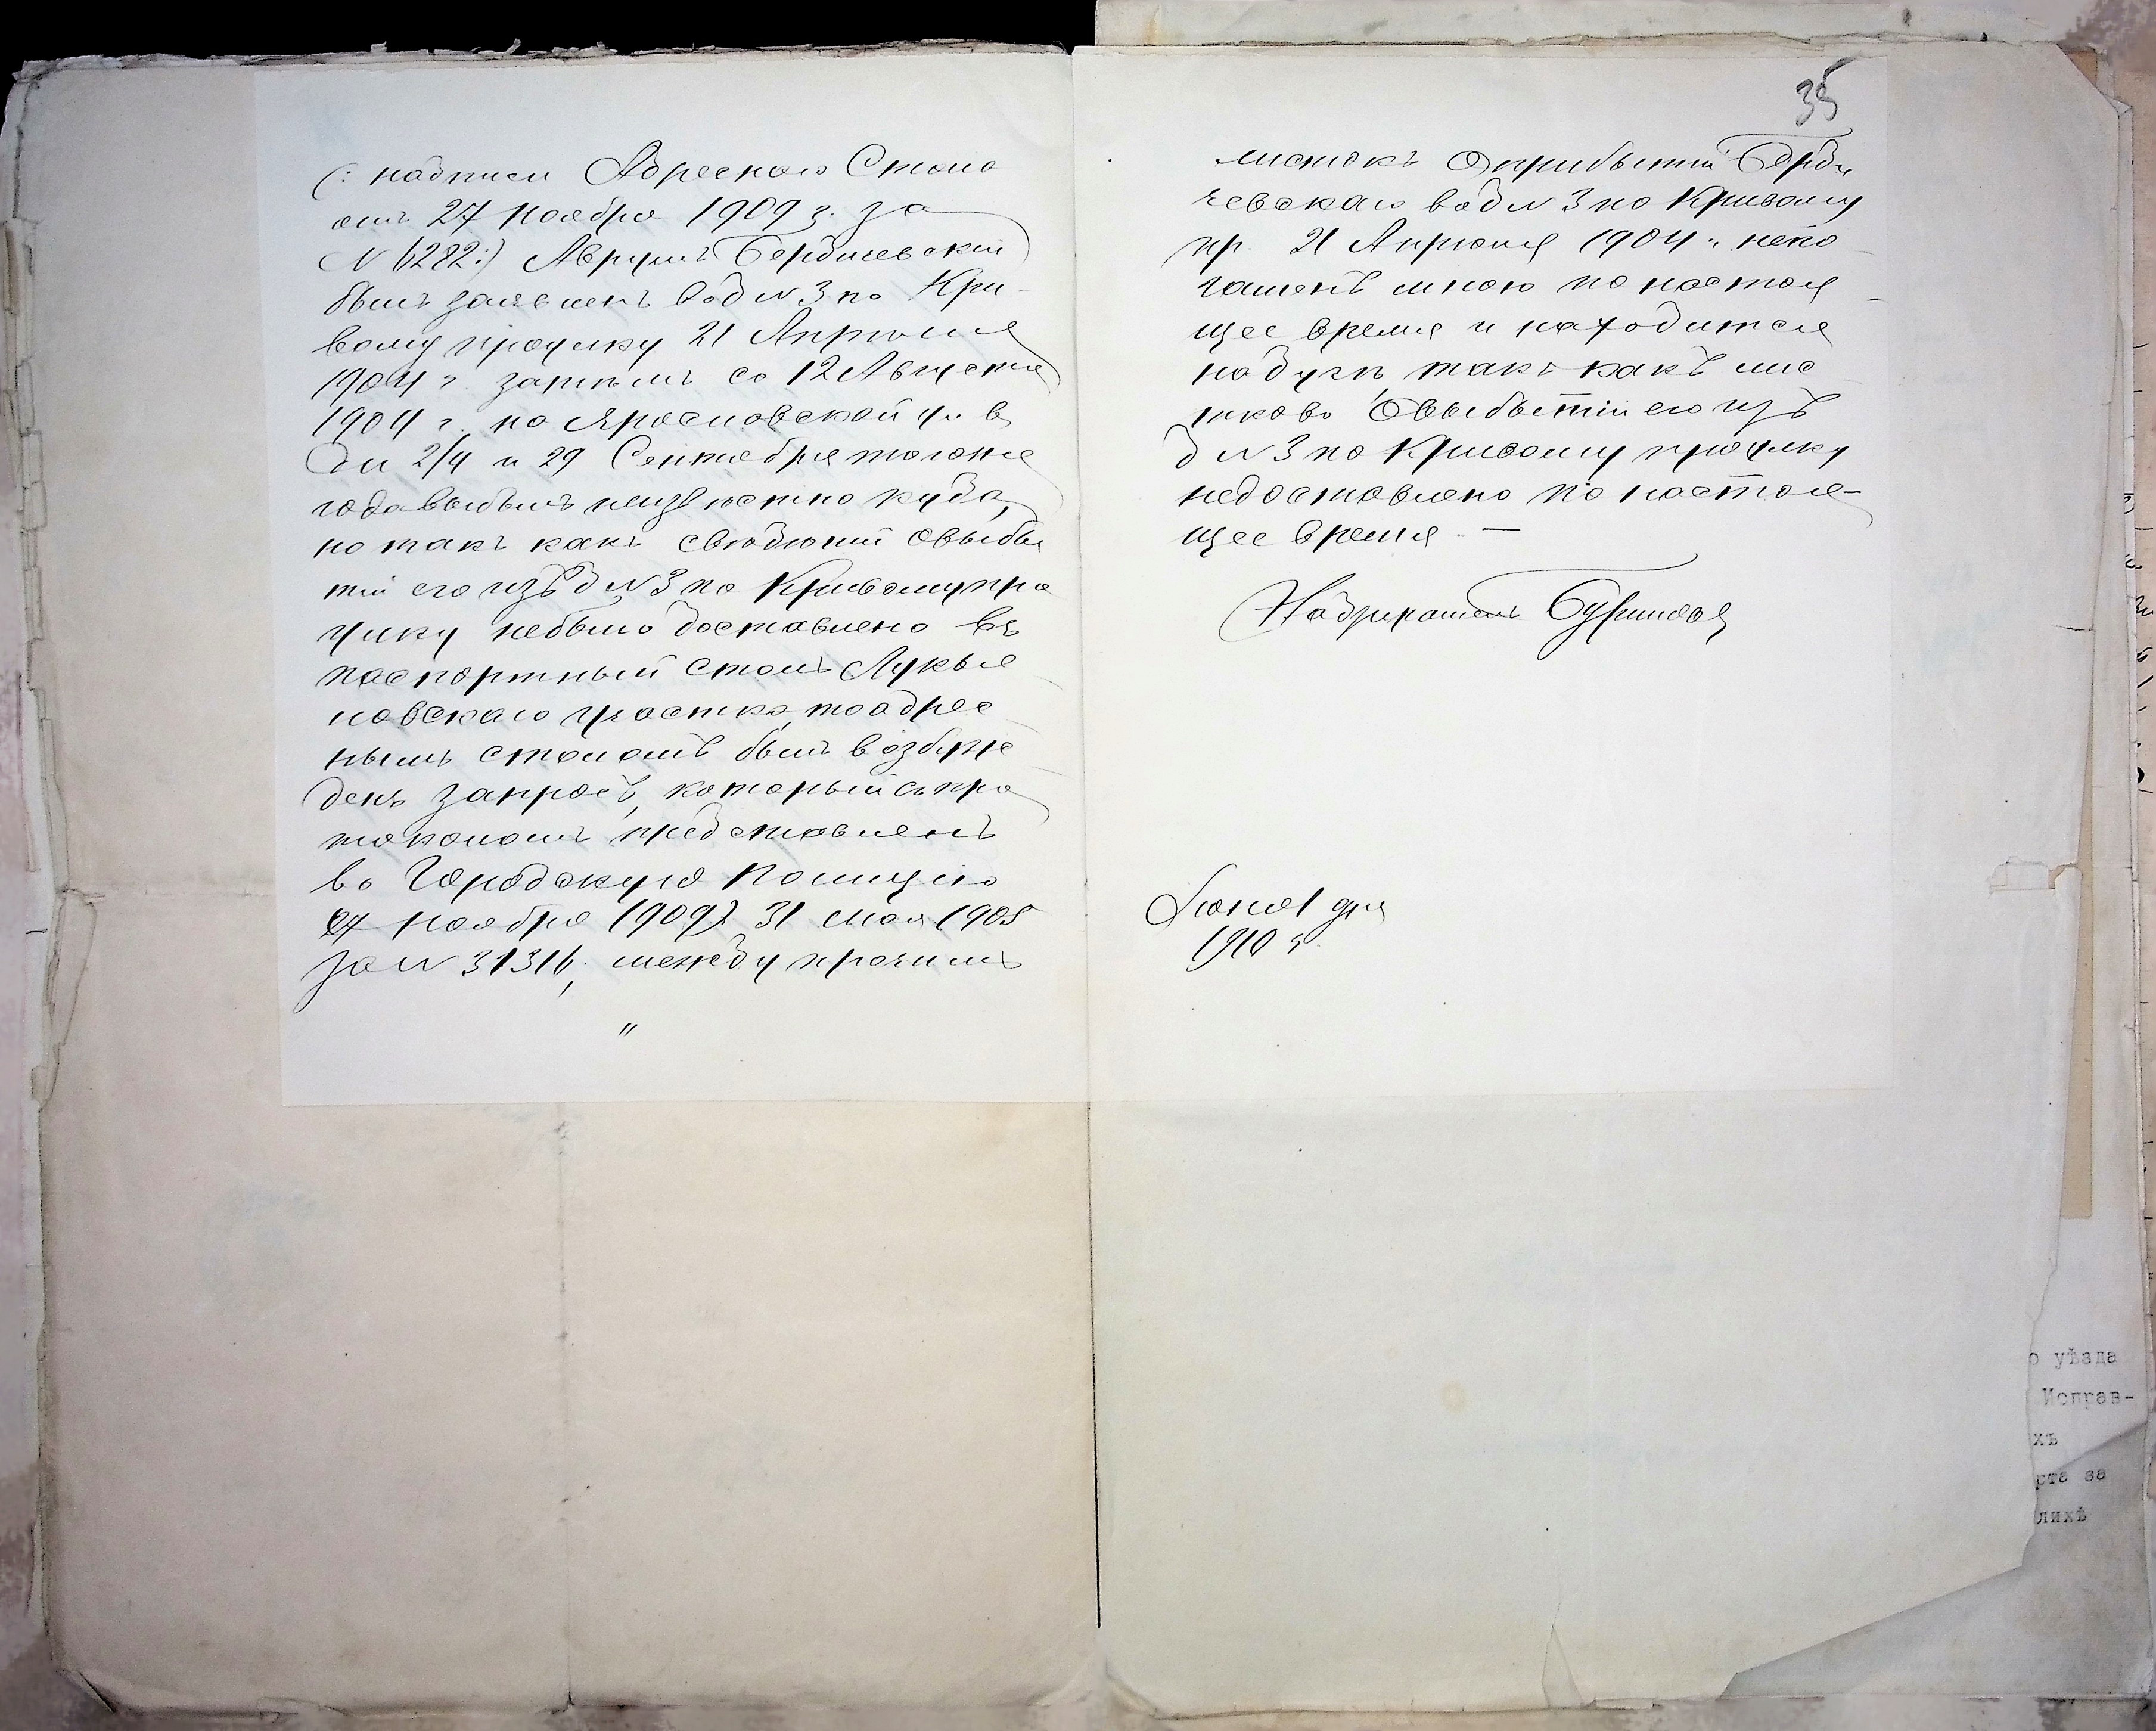 (: надписи Адреснаго Стола
отъ 27 Ноября 1909 г. за
N 6282:) Аврумъ Бердичевскій
былъ заявленъ вод N 3 по Кри-
вому проулку 21 Апрѣля
1904 г. затѣмъ со 12 Августа
1904 г. по Ярославской ул. в
д N 2/4 и 29 Сентября того же
года выбылъ неизвѣстно куда,
но такъ какъ свѣдѣній о выбы
тіи его изъ д N 3 по Кривому про
улку небыло доставлено въ
паспортный столъ Лукья
новскаго участка, то адрес
нымъ столомъ былъ возбуж
денъ запросъ, который съ про
токоломъ представленъ
во Городскую Полицію
31 мая 1905
за N 31316, между прочимъ
"
35
листокъ о прибытіи Берди
чевскаго вод N 3 по Кривому
пр. 21 Апрѣля 1904 г. непо
гашенъ мною по настоя
щее время и находится
на дугѣ, такъ какъ лис
ткова о выбытіи его изъ
д N 3 по Кривому проулку
недоставлено по настоя-
щее время. —
Надзиратель
Іюня 1 дня
1910 г.
о уѣзда
Исправ-
хъ
рта за
лихъ